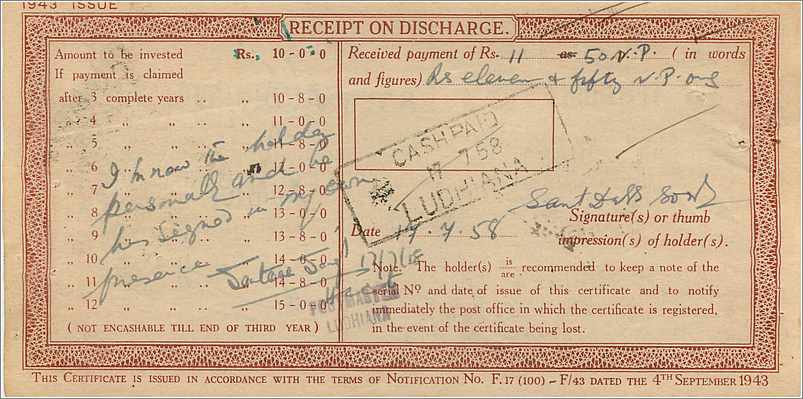 1943 ISSUE
RECEIPT ON DISCHARGE.
Amount to be invested Rs. 10-0-0
If payment is claimed
after 3 complete years .. .. 10-8-0
" 4 " " .. " 11-0-0
" 5 " "
" 6 " "
" 7 " " 12-8-0
" 8 " " 13-0-0
" 9 " " 13-8-0
" 10 " " 14-0-0
" 11 " " " 14-8-0
" 12 " " " 15-0-0
(NOT ENCASHABLE TILL END OF THIRD YEAR)
I know the holder
personally and he
has signed in my own
presence
17/7/58
POST MASTER
LUDHIANA
Received payment of Rs. 11 as 50 N.P. (in words
and figures) Rs eleven & fifty N.P. only
CASH PAID
17 7 58
LUDHIANA
Signature(s) or thumb
Date 17.7.58 impression(s) of holder(s).
Note. The holder(s) is/are recommended to keep a note of the
serial Nº and date of issue of this certificate and to notify
immediately the post office in which the certificate is registered,
in the event of the certificate being lost.
THIS CERTIFICATE IS ISSUED IN ACCORDANCE WITH THE TERMS OF NOTIFICATION No. F.17 (100) – F/43 DATED THE 4TH SEPTEMBER 1943